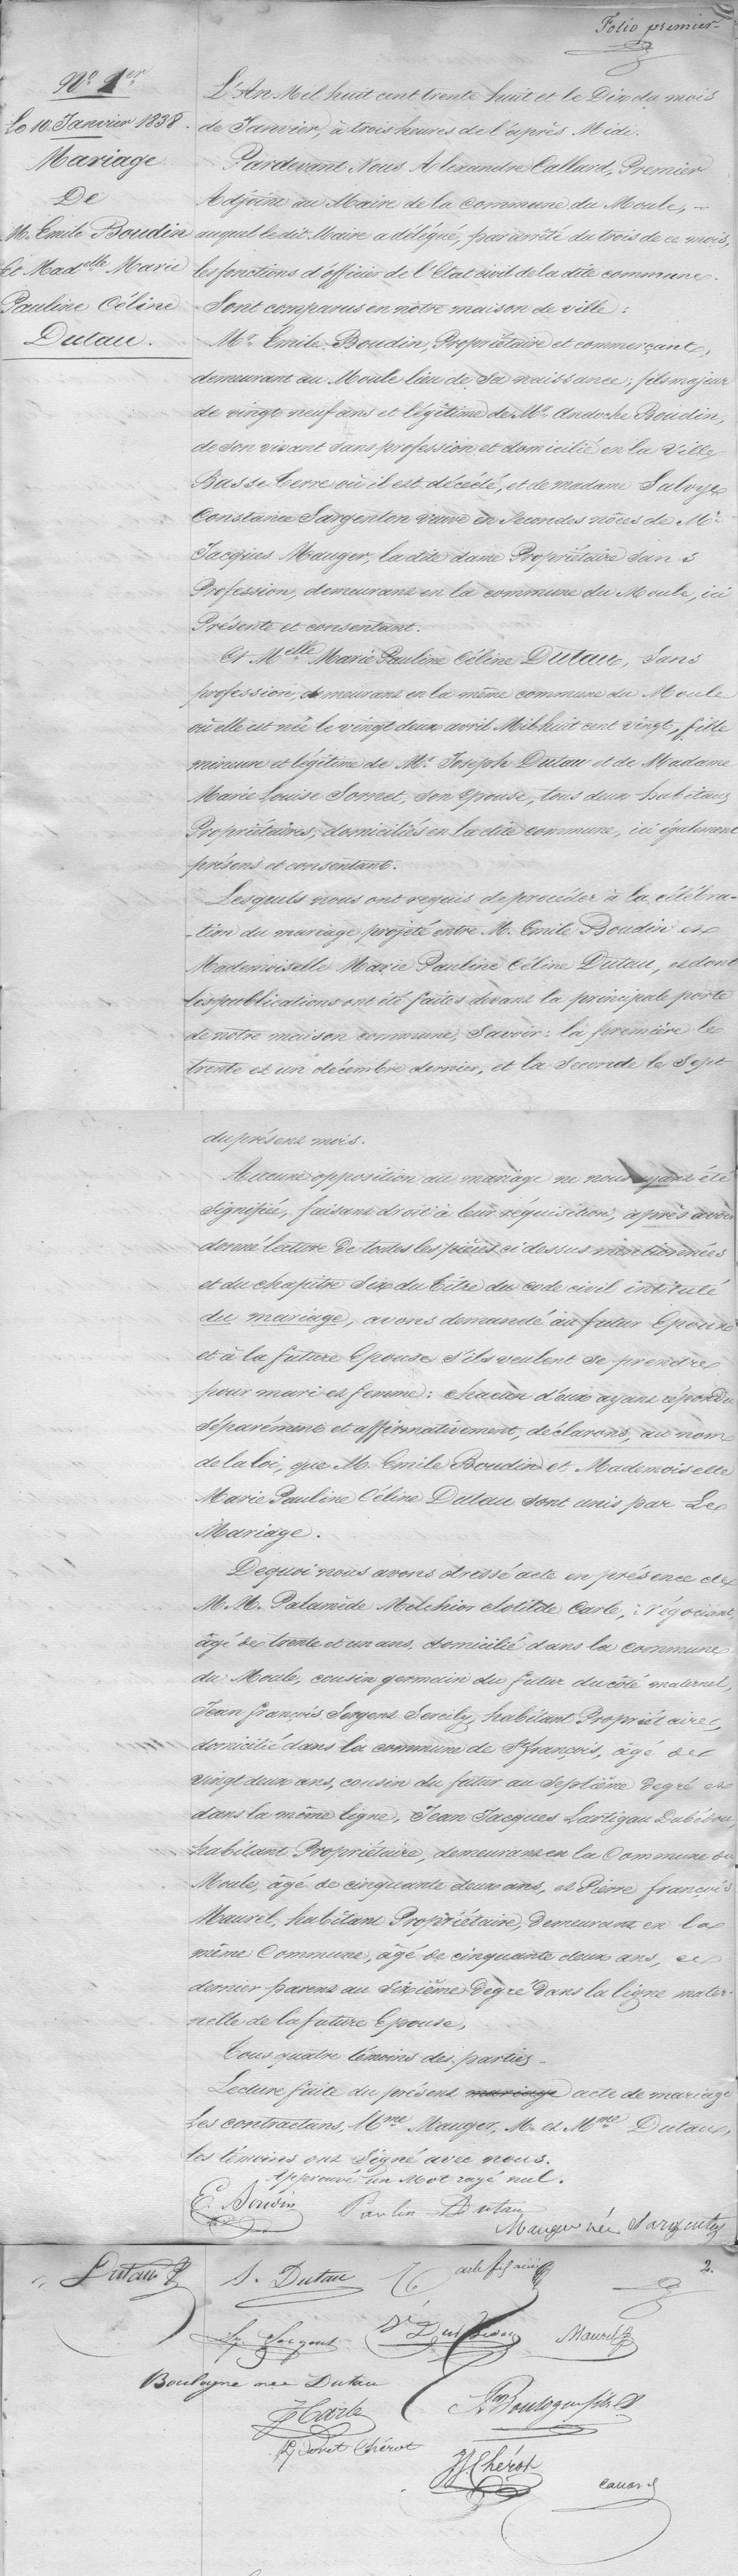 Folio premier
No. 1er
Le 10. Janvier 1838.
Mariage
De
M. Emile Boudin
Et Madelle Marie
Pauline Céline
Dutau.
L'An Mil huit cent trente huit et le Dix du mois
de Janvier, à trois heures de l'après Midi.
Pardevant Nous Alexandre Callard, Premier
Adjoint au Maire de la Commune du Moule, -
auquel le dit Maire a délégué, par arrêté du trois de ce mois,
les fonctions d'officier de l'Etat civil de la dite commune.
Sont comparus en notre maison de ville :
Mr. Emile Boudin, Propriétaire et commerçant,
demeurant au Moule lieu de sa naissance ; fils majeur
de vingt neuf ans et légitime de Mr. Andoche Boudin,
de son vivant sans profession et domicilié en la Ville
Basse terre où il est décédé, et de madame
Constance Sargenton veuve en secondes nôces de Mr.
Jacques Mauger, la dite dame Propriétaire sans
Profession, demeurant en la commune du Moule, ici
Présente et consentant.
Et Melle Marie Pauline Céline Dutau, sans
profession, demeurant en la même commune du Moule
où elle est née le vingt deux avril Mil huit cent vingt, fille
mineure et légitime de Mr. Joseph Dutau et de Madame
Marie Louise Sornet, son Epouse, tous deux habitans
Propriétaires, domiciliés en la dite commune, ici également
présens et consentant.
Lesquels nous ont requis de procéder à la célébra-
-tion du mariage projeté entre M. Emile Boudin et
Mademoiselle Marie Pauline Céline Dutau, et dont
les publications ont été faites devant la principale porte
de notre maison commune, Savoir : la première le
trente et un décembre dernier, et la Seconde le Sept
du présent mois.
Aucune opposition au mariage ne nous ayant été
signifiée, faisant droit à leur réquisition, après avoir
donné lecture de toutes les pièces ci dessus mentionnées
et du chapitre Six du titre du code civil intitulé
du mariage, avons demandé au futur Epoux
et à la future Epouse s'ils veulent se prendre
pour mari et femme : chacun d'eux ayant répondu
séparément et affirmativement, déclarons, au nom
de la loi, que M. Emile Boudin et Mademoiselle
Marie Pauline Céline Dutau sont unis par Le
Mariage.
Dequoi nous avons dressé acte en présence de
M.M. Palamède Melchior Clotilde Carle, Négociant,
âgé de trente et un ans, domicilié dans la commune
du Moule, cousin germain du futur du côté maternel,
Jean François Sergent habitant Propriétaire,
domicilié dans la commune de St. François, âgé de
vingt deux ans, cousin du futur au Septième degré et
dans la même ligne, Jean Jacques Lartigau
habitant Propriétaire, demeurant en la Commune du
Moule, âgé de cinquante deux ans, et Pierre françois
Mauril, habitant Propriétaire, demeurant en la
même Commune, âgé de cinquante deux ans, ce
dernier parent au Sixième degré dans la ligne mater-
nelle de la future Epouse,
Tous quatre témoins des parties.
Lecture faite du présent mariage acte de mariage
Les contractans, Mme Mauger, M. et Mme Dutau,
les témoins ont Signé avec nous.
Approuvé un Mot rayé nul.
E. Boudin Paulin Dutau
Mauger née Sargenton
Dutau S. Dutau 2.
Mauril
Boulogne née Dutau
Carle Boulogne fils
Sornet Chérot
Chérot